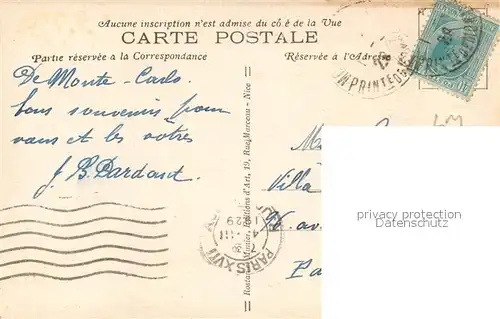 Aucune inscription n'est admise du cô é de la Vue
CARTE POSTALE
Partie réservée à la Correspondance
Réservée à l'Adresse
De Monte-Carlo.
bons souvenirs pour
vous et les vôtres
J. B. Dardant.
Villa
Pa
PARIS XVII
1929
PRINTED
Munier, Editions d'Art, 19, Rue Marceau - Nice
LM
privacy protection
Datenschutz